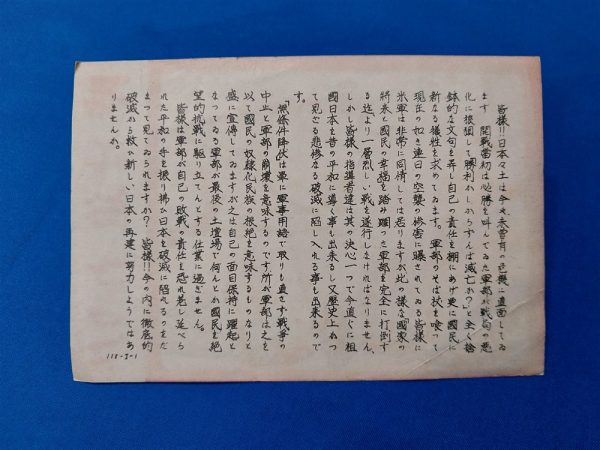 皆様!!日本々土は今や未曽有の危機に直面してゐ
ます　開戦当初は必勝を叫んでゐた軍部が戦局の悪
化に狼狽して「勝利かしからずんば滅亡か?」と全く捨
鉢的な文句を弄し自己の責任を棚にあげ更に國民に
新なる犠牲を求めてゐます。軍部のそば杖を喰って
現在の如き連日の空襲の惨害に曝されてゐる皆様に
米軍は非常に同情しては居りますが此の様な國家の
將来と國民の幸福を踏み躙った軍部を完全に打倒す
る迄より一層烈しい戦を遂行しなければなりません
しかし皆様の指導者達は其の決心一つで今直ぐに祖
國日本を昔の平和に導く事も出来るし又歴史上かつ
て見ざる悲惨なる破滅に陥し入れる事も出来るので
す。
「無條件降伏」は単に軍事用語で取りも直さず戦争の
中止と軍部の崩壊を意味するのです。所が軍部は之を
以て國民の奴隷化民族の根絶を意味するものなりと
盛に宣傳してゐますが之は自己の面目保持に躍起と
なってゐる軍部が最後の土壇場で何んとか國民を絶
望的抗戦に駆り立てんとする仕業に過ぎません。
皆様は軍部が自己の敗戦の責任を恐れ差し延べら
れた平和の手を振り拂ひ日本を破滅に陥れるのをだ
まって見てゐられますか?　皆様!!今の内に徹底的
破滅から救ひ新しい日本の再建に努力しようではあ
りませんか。
118-J-1